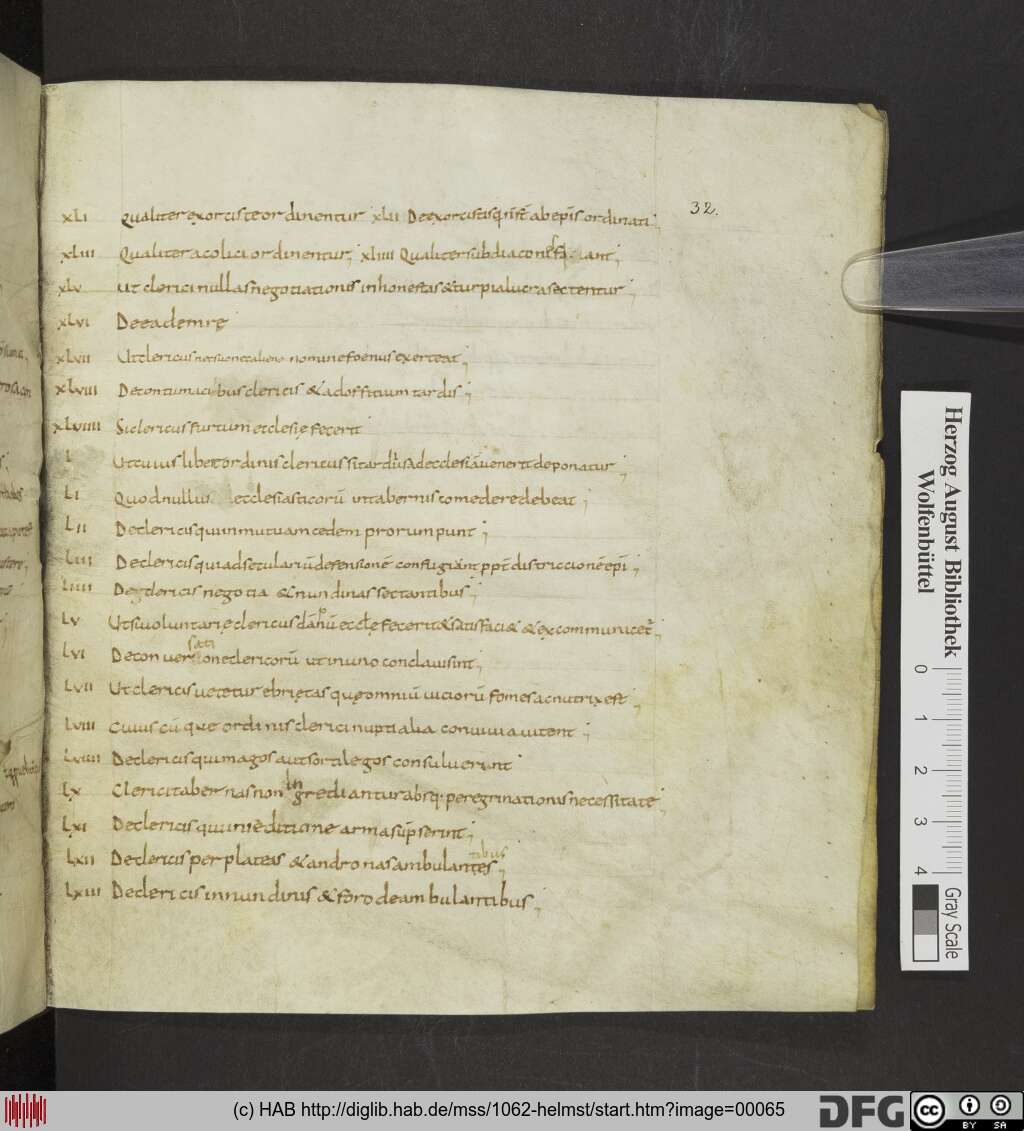 32.
XLI Qualiter exorcistę ordinentur XLII De exorcistis q̅ n̅ s̅t ab ep̅is ordinati;
XLIII Qualiter acoliti ordinentur; XLIIII Qualiter subdiacones fiant;
XLV Ut clerici nullas negotiationis inhonestas & turpia lucra sectentur;
XLVI De eadem rę;
XLVII Ut clericus nec suo nec alieno nomine foenus exerceat;
XLVIII De contumacibus clericis & ad officium tardis;
XLVIIII Si clericus furtum ecclesię fecerit
L Ut cuius libet ordinis clericus si tardius ad ecclesiā uenerit deponatur;
LI Quod nullus ecclesiasticorū in tabernis comedere debeat;
LII De clericis qui in mutuam cedem prorumpunt;
LIII De clericis qui ad seculariū defensionē confugiant pp̅t districcionē ep̅i;
LIIII De clericis negotia & nundinas sectantibus;
LV Ut si uoluntarię clericus dāpnū eccl̅ę fecerit & satisfaci& & excommunicet̅;
LVI De conuersatione clericorū ut in uno conclaui sint;
LVII Ut clericis uetetur ebrietas quę omniū uiciorū fomes ac nutrix est;
LVIII Cuius cū que ordinis clerici nuptialia conuiuia uitent;
LVIIII De clericis qui magos aut sortilegos consuluerint
LX Clerici tabernas non ingrediantur absq; peregrinationis necessitate;
LXI De clericis qui in seditione arma sūpserint;
LXII De clericis per plateas & andronas ambulantes;
tibus
LXIII De clericis in nundinis & foro deambulantibus;
Herzog August Bibliothek
Wolfenbüttel
0 1 2 3 4
Gray Scale
(c) HAB http://diglib.hab.de/mss/1062-helmst/start.htm?image=00065
DFG
cc BY SA